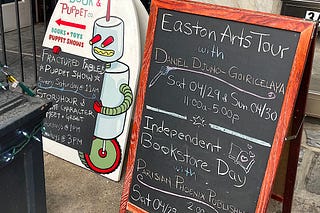 BOOK &
PUPPET Co
BOOKS • TOYS
PUPPET SHOWS
FRACTURED FABLES
A PUPPET SHOW
every Saturday at 11am
STORYHOUR &
CHARACTER
MEET &
GREET
Easton Arts Tour
with
Daniel Djuno-Goiricelaya
Sat 04/29 & Sun 04/30
11:00a-5:00p
Independent
Bookstore Day
with
Parisian Phoenix Publishing
Sat 04/29